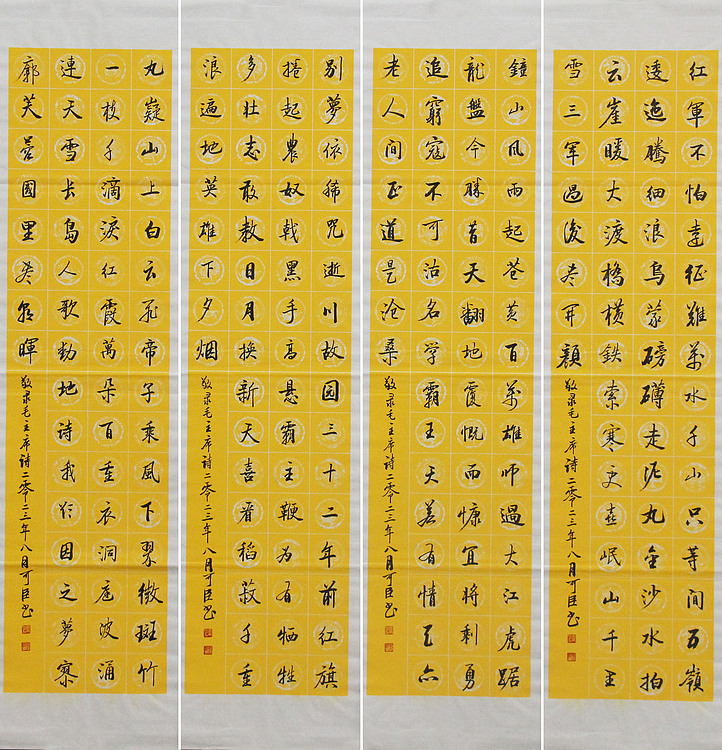 紅軍不怕遠征難萬水千山只等間五嶺
逶迤騰細浪烏蒙磅礴走泥丸金沙水拍
云崖暖大渡橋橫鉄索寒更喜岷山千里
雪三軍過後尽開顔
敬录毛主席詩二零二三年八月可臣书
鐘山风雨起苍黄百萬雄师過大江虎踞
龍盤今勝昔天翻地覆慨而慷宜將剩勇
追窮寇不可沽名学霸王天若有情天亦
老人間正道是滄桑
敬录毛主席詩二零二三年八月可臣书
别夢依稀咒逝川故园三十二年前红旗
捲起農奴戟黑手高悬霸主鞭为有牺牲
多壮志敢教日月换新天喜看稻菽千重
浪遍地英雄下夕烟
敬录毛主席詩二零二三年八月可臣书
九嶷山上白云飛帝子乘風下翠微斑竹
一枝千滴淚红霞萬朵百重衣洞庭波涌
連天雪长島人歌動地詩我欲因之夢寥
廓芙蓉國里尽朝暉
敬录毛主席詩二零二三年八月可臣书